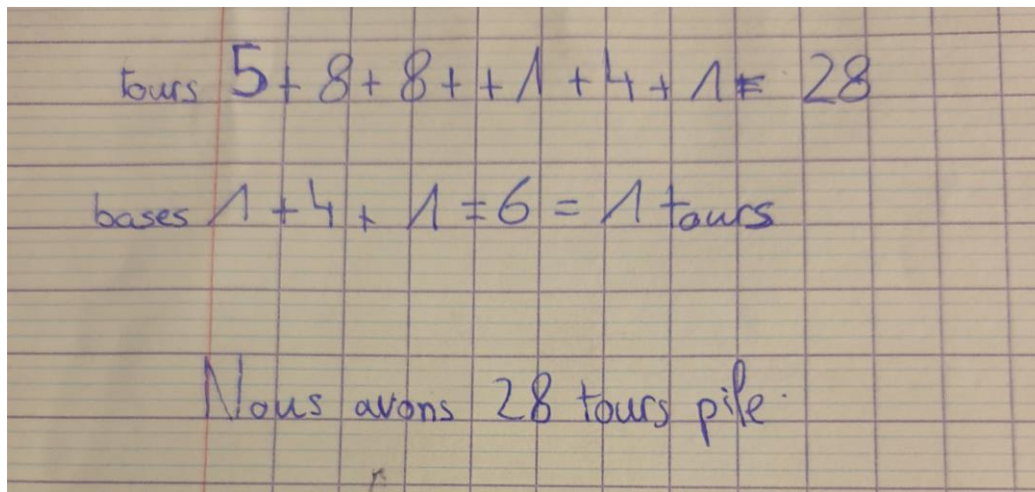 tours 5+8+8++1+4+1= 28
bases 1+4+1=6=1 tours
Nous avons 28 tours pile.